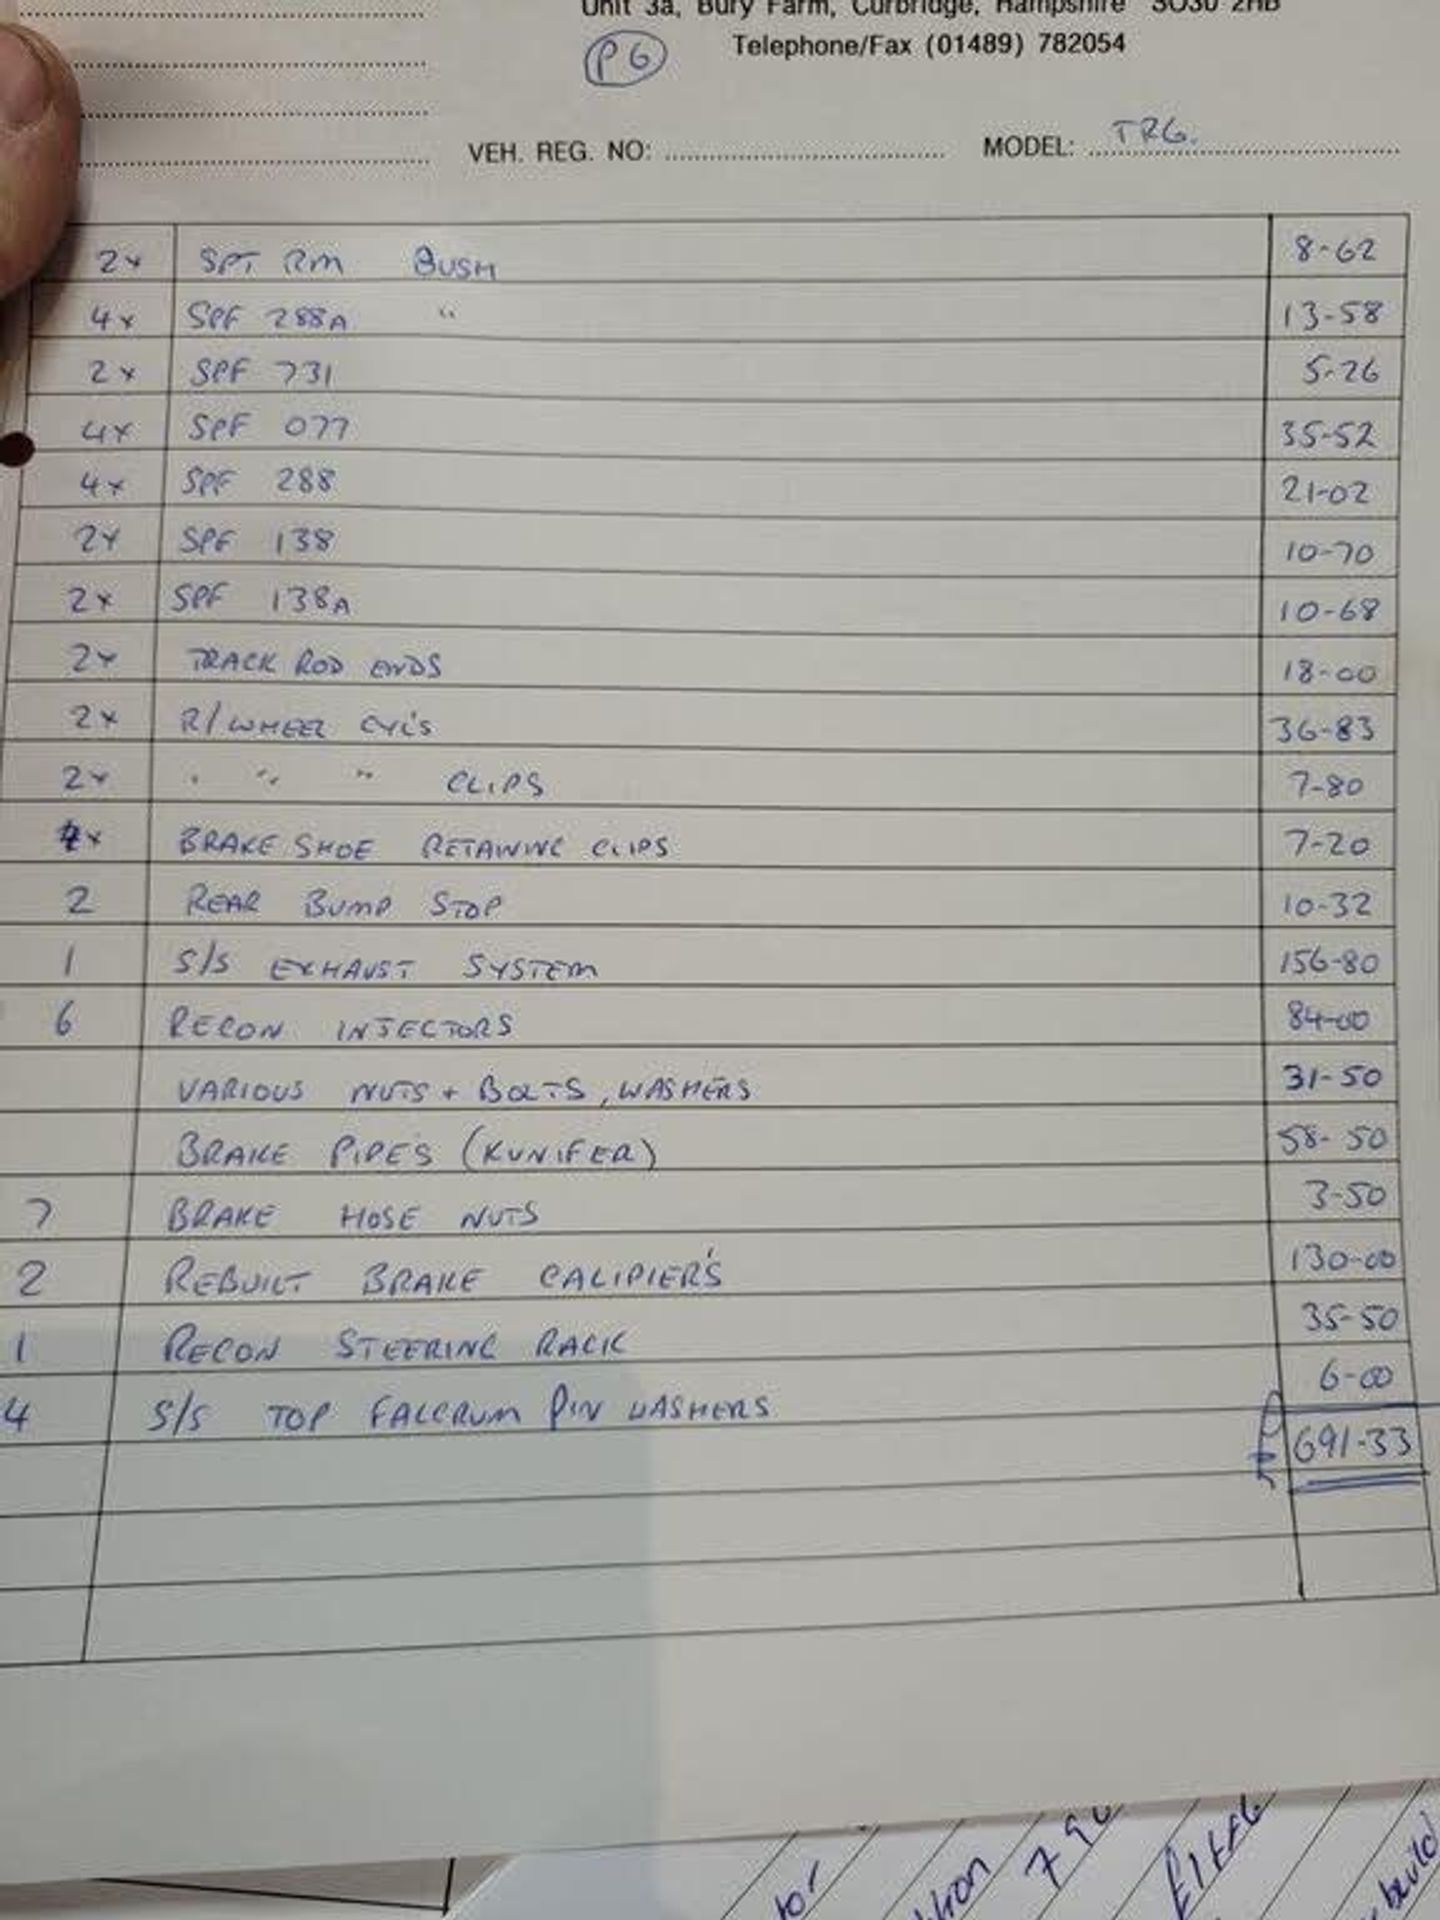 Unit 3a, Bury Farm, Curbridge, Hampshire SO30 2HB
P6 Telephone/Fax (01489) 782054
VEH. REG. NO: MODEL: TR6.
2x SPT RM BUSH 8-62
4x SPF 288A " 13-58
2x SPF 731 5-26
4x SPF 077 35-52
4x SPF 288 21-02
2x SPF 138 10-70
2x SPF 138A 10-68
2x TRACK ROD ENDS 18-00
2x R/WHEEL CYL'S 36-83
2x " " " CLIPS 7-80
4x BRAKE SHOE RETAINING CLIPS 7-20
2 REAR BUMP STOP 10-32
1 S/S EXHAUST SYSTEM 156-80
6 RECON INJECTORS 84-00
VARIOUS NUTS + BOLTS, WASHERS 31-50
BRAKE PIPES (KUNIFER) 58-50
7 BRAKE HOSE NUTS 3-50
2 REBUILT BRAKE CALIPIER'S 130-00
1 RECON STEERING RACK 35-50
4 S/S TOP FALCRUM PIN WASHERS 6-00
£ 691-33
build